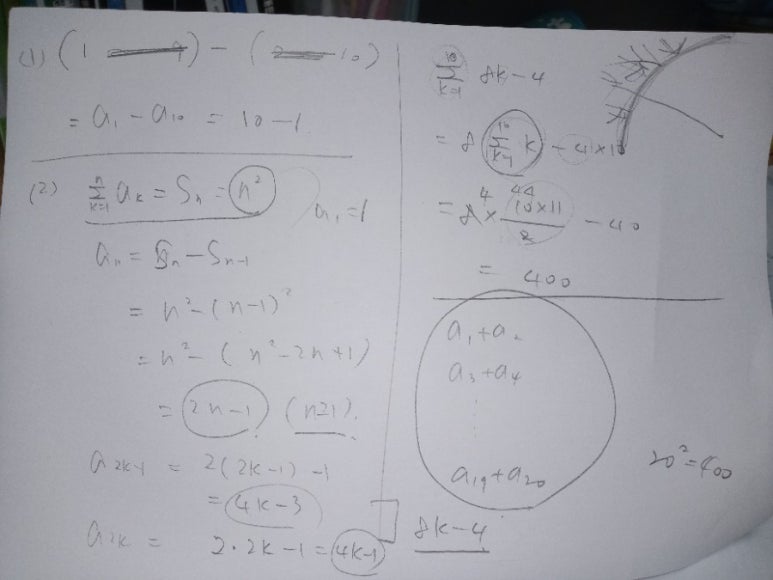 (1) (1 ) - ( 10)
= a₁ - a₁₀ = 10 - 1
(2) Σₖ₌₁ⁿ aₖ = Sₙ = n²
a₁ = 1
aₙ = Sₙ - Sₙ₋₁
= n² - (n-1)²
= n² - (n² - 2n + 1)
= 2n - 1 (n≥1).
a₂ₖ₋₁ = 2(2k-1) - 1
= 4k - 3
a₂ₖ = 2·2k - 1 = 4k-1
8k-4
Σₖ₌₁¹⁰ 8k - 4
= 8 Σₖ₌₁¹⁰ k - 4×10
4 44
= 8 × 10×11/2 - 40
= 400
a₁ + a₂
a₃ + a₄
⋮
a₁₉ + a₂₀
20² = 400